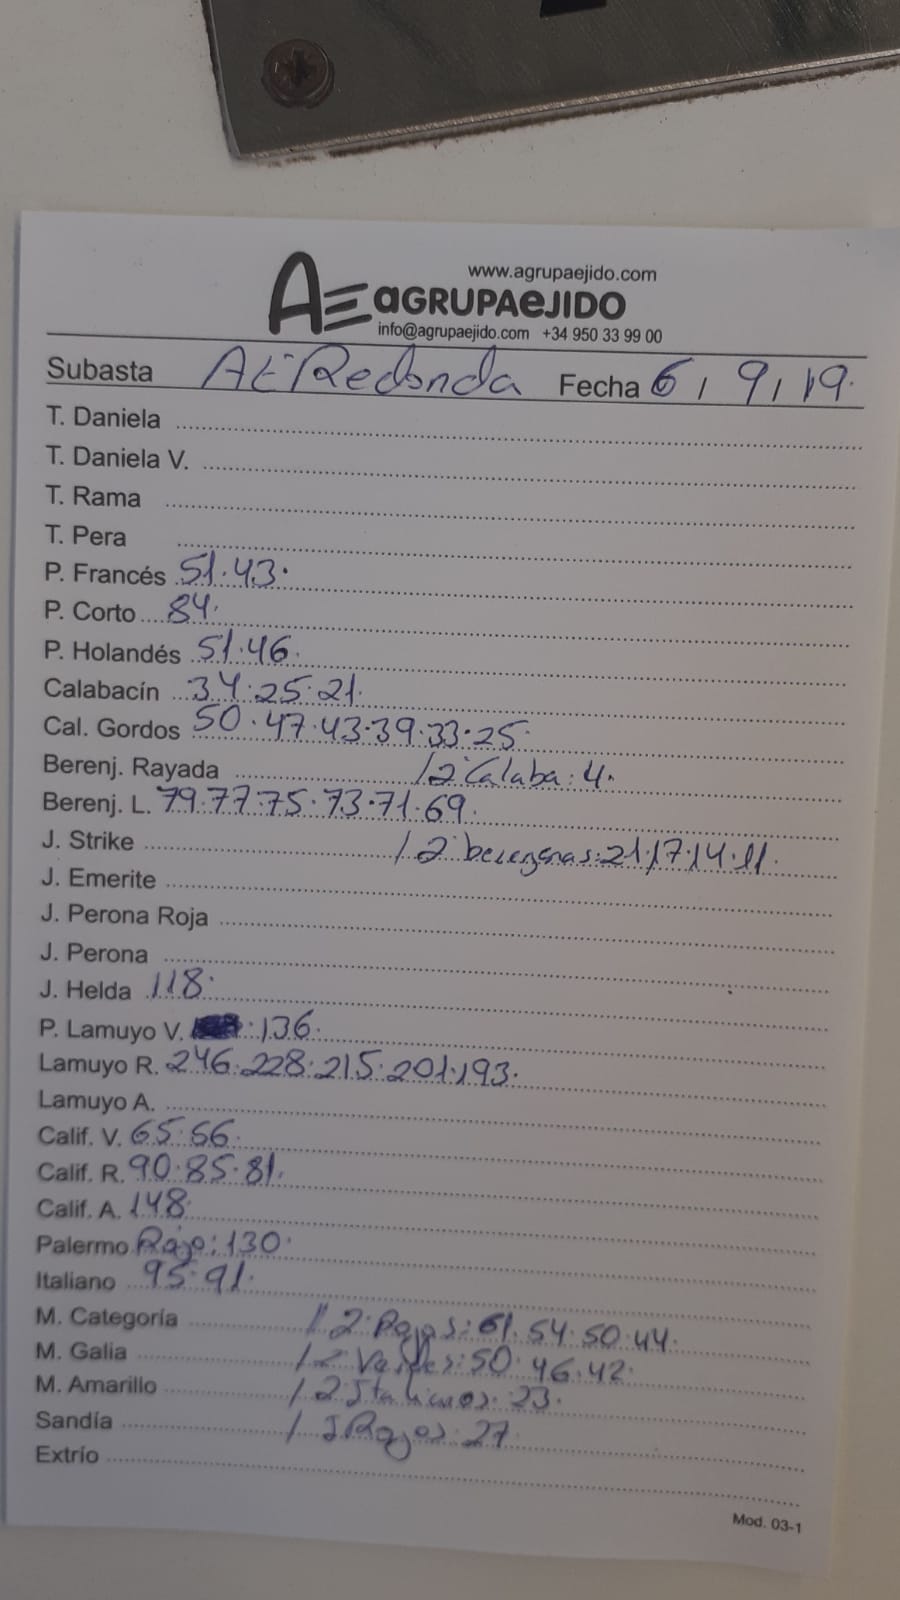 www.agrupaejido.com
AE aGRUPAeJIDO
info@agrupaejido.com +34 950 33 99 00
Subasta AE Redonda Fecha 6 / 9 / 19.
T. Daniela
T. Daniela V.
T. Rama
T. Pera
P. Francés 51.43.
P. Corto 84.
P. Holandés 51.46.
Calabacín 34.25.21.
Cal. Gordos 50.47.43.39.33.25.
Berenj. Rayada / 2ª Calaba: 4.
Berenj. L. 79.77.75.73.71.69.
J. Strike / 2ª berengenas: 21.17.14.11.
J. Emerite
J. Perona Roja
J. Perona
J. Helda 118.
P. Lamuyo V. : 136.
Lamuyo R. 246.228.215.201.193.
Lamuyo A.
Calif. V. 65.56.
Calif. R. 90.85.81.
Calif. A. 148.
Palermo Rojo: 130.
Italiano 95.91.
M. Categoría / 2ª Rojos: 61.54.50.44.
M. Galia / 2ª Verdes: 50.46.42.
M. Amarillo / 2ª Italianos: 23.
Sandía / Rojos: 27.
Extrío
Mod. 03-1